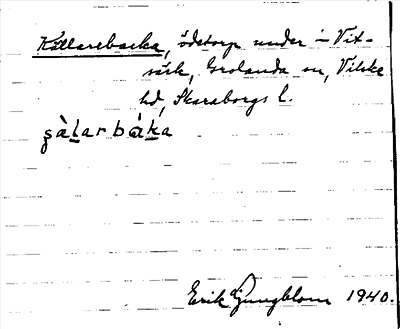 Källarebacka, ödetorp under – Vit-
särk, Grolanda sn, Vilske
hd, Skaraborgs l.
şàlarbákа
Erik Ljungblom 1940.